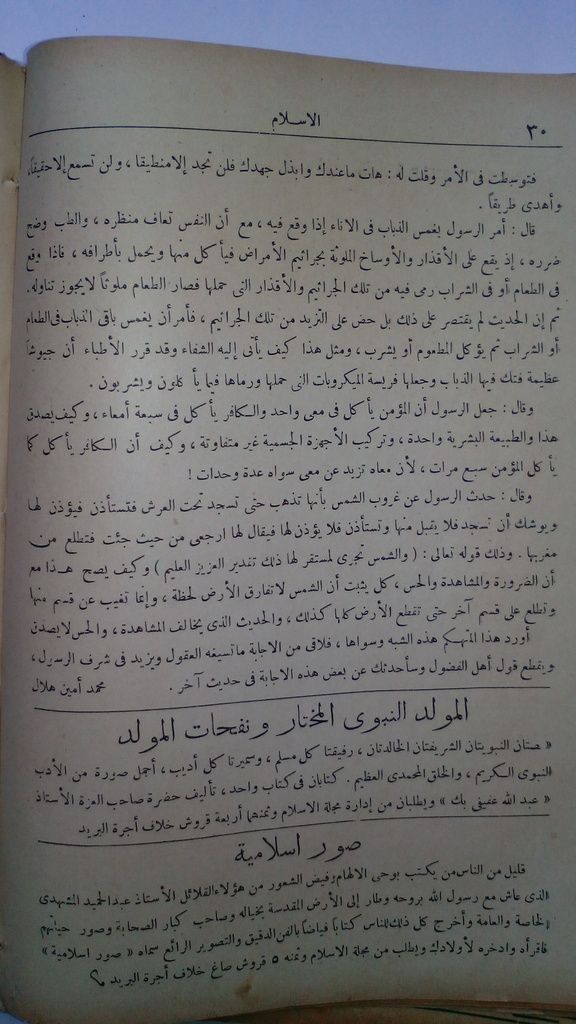 ٣٠
الاسلام
فتوسطت فى الأمر وقلت له : هات ماعندك وابذل جهدك فلن تجد إلا منطيقا ، ولن تسمع إلا حقيقة
وأهدى طريقاً .
قال : أمر الرسول بغمس الذباب فى الاناء إذا وقع فيه ، مع أن النفس تعاف منظره ، والطب وضح
ضرره ، إذ يقع على الأقذار والأوساخ الملوثة بجراثيم الأمراض فيأكل منها ويحمل بأطرافه ، فاذا وقع
فى الطعام أو فى الشراب رمى فيه من تلك الجراثيم والأقذار التى حملها فصار الطعام ملوثاً لايجوز تناوله .
ثم إن الحديث لم يقتصر على ذلك بل حض على التزيد من تلك الجراثيم ، فأمر أن يغمس باقى الذباب فى الطعام
أو الشراب ثم يؤكل المطعوم أو يشرب ، ومثل هذا كيف يأتى إليه الشفاء وقد قرر الأطباء أن جيوشا
عظيمة فتك فيها الذباب وجعلها فريسة الميكروبات التى حملها ورماها فيما يأكلون ويشربون .
وقال : جعل الرسول أن المؤمن يأكل فى معى واحد والكافر يأكل فى سبعة أمعاء ، وكيف يصدق
هذا والطبيعة البشرية واحدة ، وتركيب الأجهزة الجسمية غير متفاوتة ، وكيف أن الكافر يأكل كما
يأكل المؤمن سبع مرات ، لأن معاه تزيد عن معى سواه عدة وحدات !
وقال : حدث الرسول عن غروب الشمس بأنها تذهب حتى تسجد تحت العرش فتستأذن فيؤذن لها
ويوشك أن تسجد فلا يقبل منها وتستأذن فلا يؤذن لها فيقال لها ارجعى من حيث جئت فتطلع من
مغربها . وذلك قوله تعالى : ( والشمس تجرى لمستقر لها ذلك تقدير العزيز العليم ) وكيف يصح هذا مع
أن الضرورة والمشاهدة والحس ، كل يثبت أن الشمس لاتفارق الأرض لحظة ، وإنما تغيب عن قسم منها
وتطلع على قسم آخر حتى تقطع الأرض كلها كذلك ، والحديث الذى يخالف المشاهدة ، والحس لايصدق
أورد هذا المتهكم هذه الشبه وسواها ، فلاقى من الاجابة ماتسيغه العقول ويزيد فى شرف الرسول ،
ويقطع قول أهل الفضول وسأحدثك عن بعض هذه الاجابة فى حديث آخر . محمد أمين هلال
المولد النبوى المختار و نفحات المولد
« صتان النبويتان الشريفتان الخالدتان ، رفيقتا كل مسلم ، وسميرتا كل أديب ، أجمل صورة من الأدب
النبوى الكريم ، والخلق المحمدى العظيم . كتابان فى كتاب واحد ، تأليف حضرة صاحب العزة الأستاذ
« عبد الله عفيفى بك » ويطلبان من إدارة مجلة الاسلام وثمنهما أربعة قروش خلاف أجرة البريد
صور اسلامية
قليل من الناس من يكتب بوحى الالهام وفيض الشعور من هؤلاء القلائل الأستاذ عبد الحميد المشهدى
الذى عاش مع رسول الله بروحه وطار إلى الأرض المقدسة بخياله وصاحب كبار الصحابة وصور حياتهم
الخاصة والعامة وأخرج كل ذلك للناس كتابا فياضا بالفن الدقيق والتصوير الرائع سماه « صور اسلامية »
فاقرأه وادخره لأولادك ويطلب من مجلة الاسلام وثمنه ٥ قروش صاغ خلاف أجرة البريد